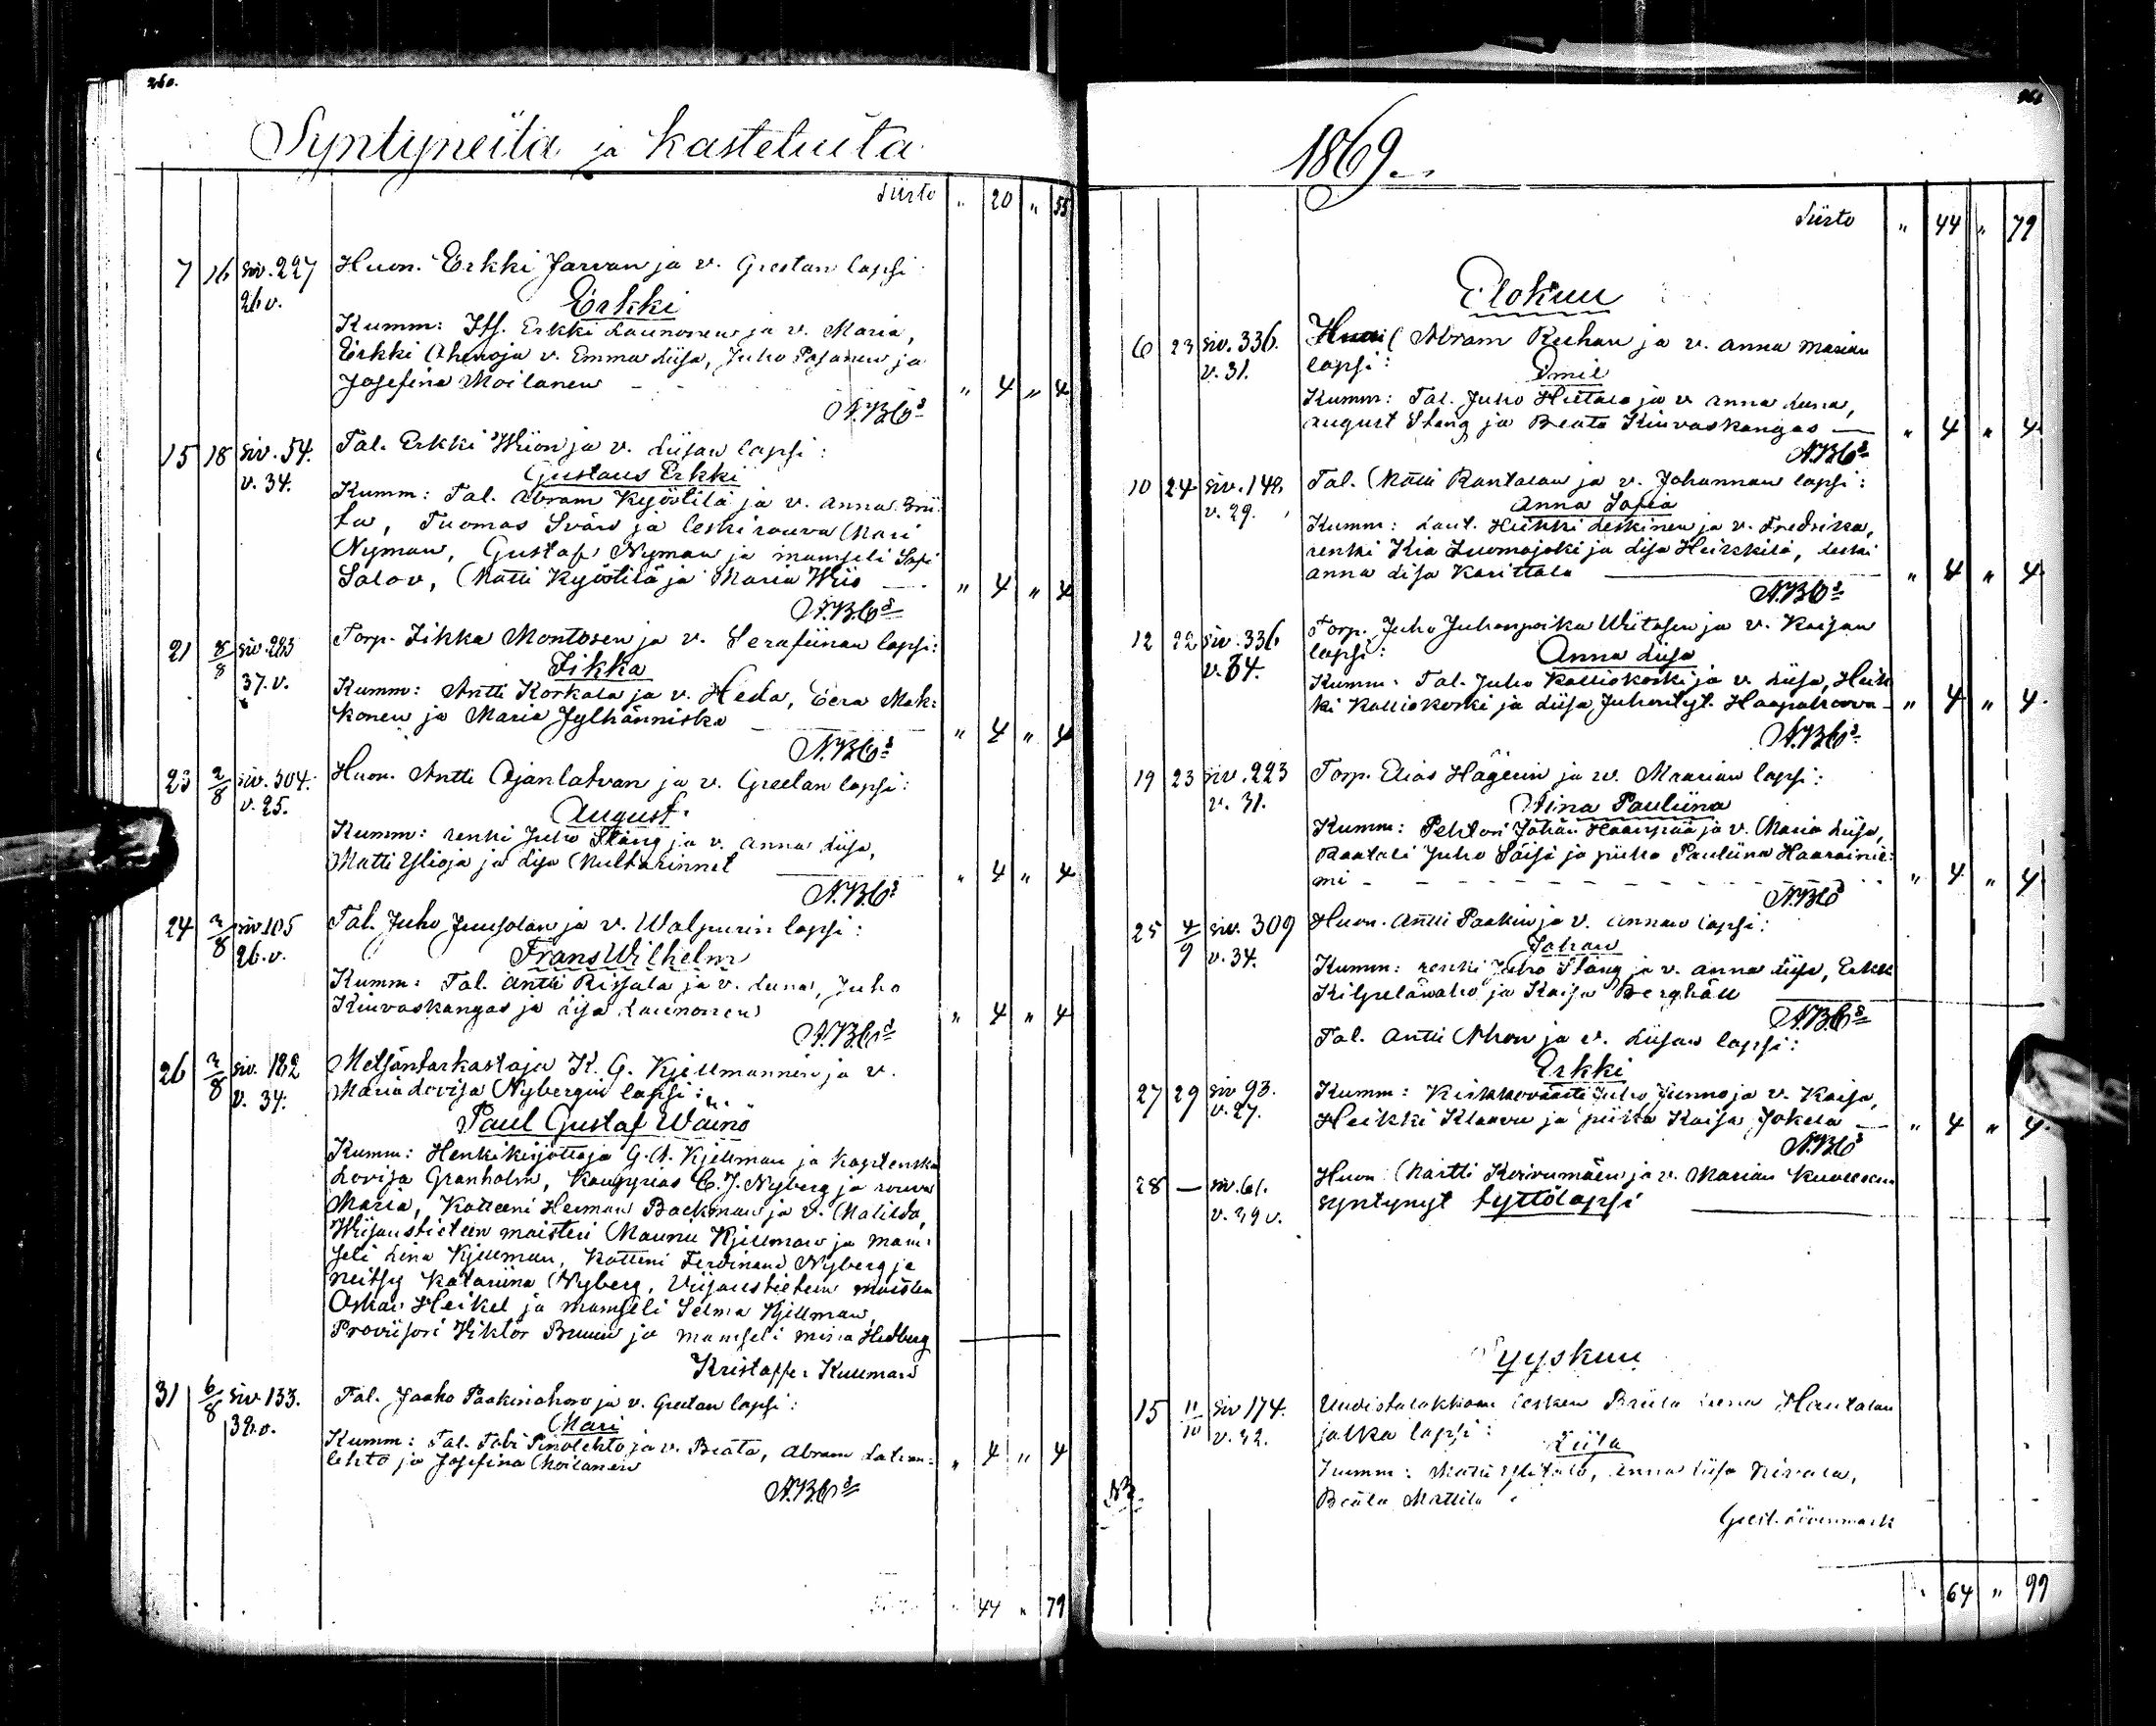 260.
Syntyneitä ja kastetuita
Siirto " 20 " 55
7 16 siv. 227 Huon. Erkki Jarvan ja v. Gretan lapsi
26 v. Erkki
Kumm: Itf. Erkki Launonen ja v. Maria,
Erkki Ahenoja v. Emma Liisa, Juho Pasanen ja
Josefina Moilanen " 4 " 4
15 18 siv. 54. Tal. Erkki Wiion ja v. Liisan lapsi:
v. 34. Gustaus Erkki
Kumm: Tal. Abram Kyöstilä ja v. Anna Brii-
ta, Tuomas Svärd ja leskirouva Mari
Nyman, Gustaf Nyman ja mamseli Sofi
Salov, Matti Kyöstilä ja Maria Wiio " 4 " 4
21 8/8 siv. 283 Torp. Iikka Montosen ja v. Serafiinan lapsi:
37. v. Iikka
Kumm: Antti Korkala ja v. Heda, Eera Mak-
konen ja Maria Jylhänniska " 4 " 4
23 2/8 siv. 304. Huon. Antti Ojanlatvan ja v. Greetan lapsi:
v. 25. August.
Kumm: renki Juho Stång ja v. Anna Liisa,
Matti Ylioja ja Lisa Multarinnet " 4 " 4
24 2/8 siv 105 Tal. Juho Juusolan ja v. Walpurin lapsi:
26. v. Frans Wilhelm
Kumm: Tal. Antti Rissala ja v. Leena, Juho
Kiuvaskangas ja Lisa Launonen " 4 " 4
26 2/8 siv. 182 Metsäntarkastaja K. G. Kjellmannin ja v.
v. 34. Maria Lovisa Nybergin lapsi:
Paul Gustaf Wäinö
Kumm: Henkikirjottaja G. A. Kjellman ja kaptenska
Lovisa Granholm, Kauppias C. J. Nyberg ja rouva
Maria, Katteeni Herman Backman ja v. Matilda,
Wiisaustieteen maisteri Maunu Kjellman ja mam-
seli Lina Kjellman, Katteni Ferdinand Nyberg ja
neitsy Katariina Nyberg, Viisaustieteen maisteri
Oskar Heikel ja mamseli Selma Kjellman,
Proviisori Viktor Bruun ja mamseli Mina Hedberg
Kristaffer Kuuman
31 6/8 siv 133. Tal. Jaako Paakinahon ja v. Greetan lapsi:
32. v. Mari
Kumm: Tal. Tobi Pinolehto ja v. Beata, Abram
lehto ja Josefina Moilanen " 4 " 4
" 44 " 79
261
1869.
Siirto " 44 " 79
Elokuu
6 23 siv. 336. Abram Ruhan ja v. Anna Marian
v. 31. lapsi: Emil
Kumm: Tal. Juho Hietala ja v Anna Leena,
August Stång ja Beata Kiuvaskangas " 4 " 4
10 24 siv. 149. Tal. Matti Rantalan ja v. Johannan lapsi:
v. 29. Anna Sofia
Kumm: Laut. Heikki Leskinen ja v. Fredrikka,
renki Kia Luomajoki ja Lisa Heikkilä, leski
Anna Lisa Karittala " 4 " 4
12 22 siv. 336 Torp. Juho Juhonpoika Wiitasen ja v. Kaisan
v. 34. lapsi: Anna Liisa
Kumm. Tal. Juho Kalliokoski ja v. Liisa, Heik
ki Kalliokoski ja Liisa Juhontyt. Haapakoova " 4 " 4
19 23 siv. 223 Torp. Elias Hägerin ja w. Maarian lapsi:
v. 31. Stina Pauliina
Kumm: Pehtori Johan Haarpää ja v. Maria Liisa,
Raatali Juho Säisi ja piika Pauliina Haarainie-
mi " 4 " 4
25 4/9 siv. 309 Huon. Antti Paakin ja v. Annan lapsi:
v. 34. Johan
Kumm: renki Juho Stång ja v. Anna Liisa, Erkk
Kilpelänaho ja Kaisa Berghäll
Tal. Antti Ahon ja v. Liisan lapsi:
Erkki
27 29 siv 93. Kumm: Kirkkoväärti Juho Junno ja v. Kaisa,
v. 27. Heikki Klaavu ja piika Kaisa Jokela " 4 " 4
28 — siv. 61. Huon. Martti Koivumäen ja v. Marian kuolleena
v. 39 v. syntynyt tyttölapsi
Syyskuu
15 11/10 siv 174. Uudistalokkaan lesken Briita Leena Hautalan
v. 32. jalka lapsi: Liisa
Kumm: Matti Ylitalo, Anna Liisa Nivala,
Beata Mattila
NB.
" 64 " 99